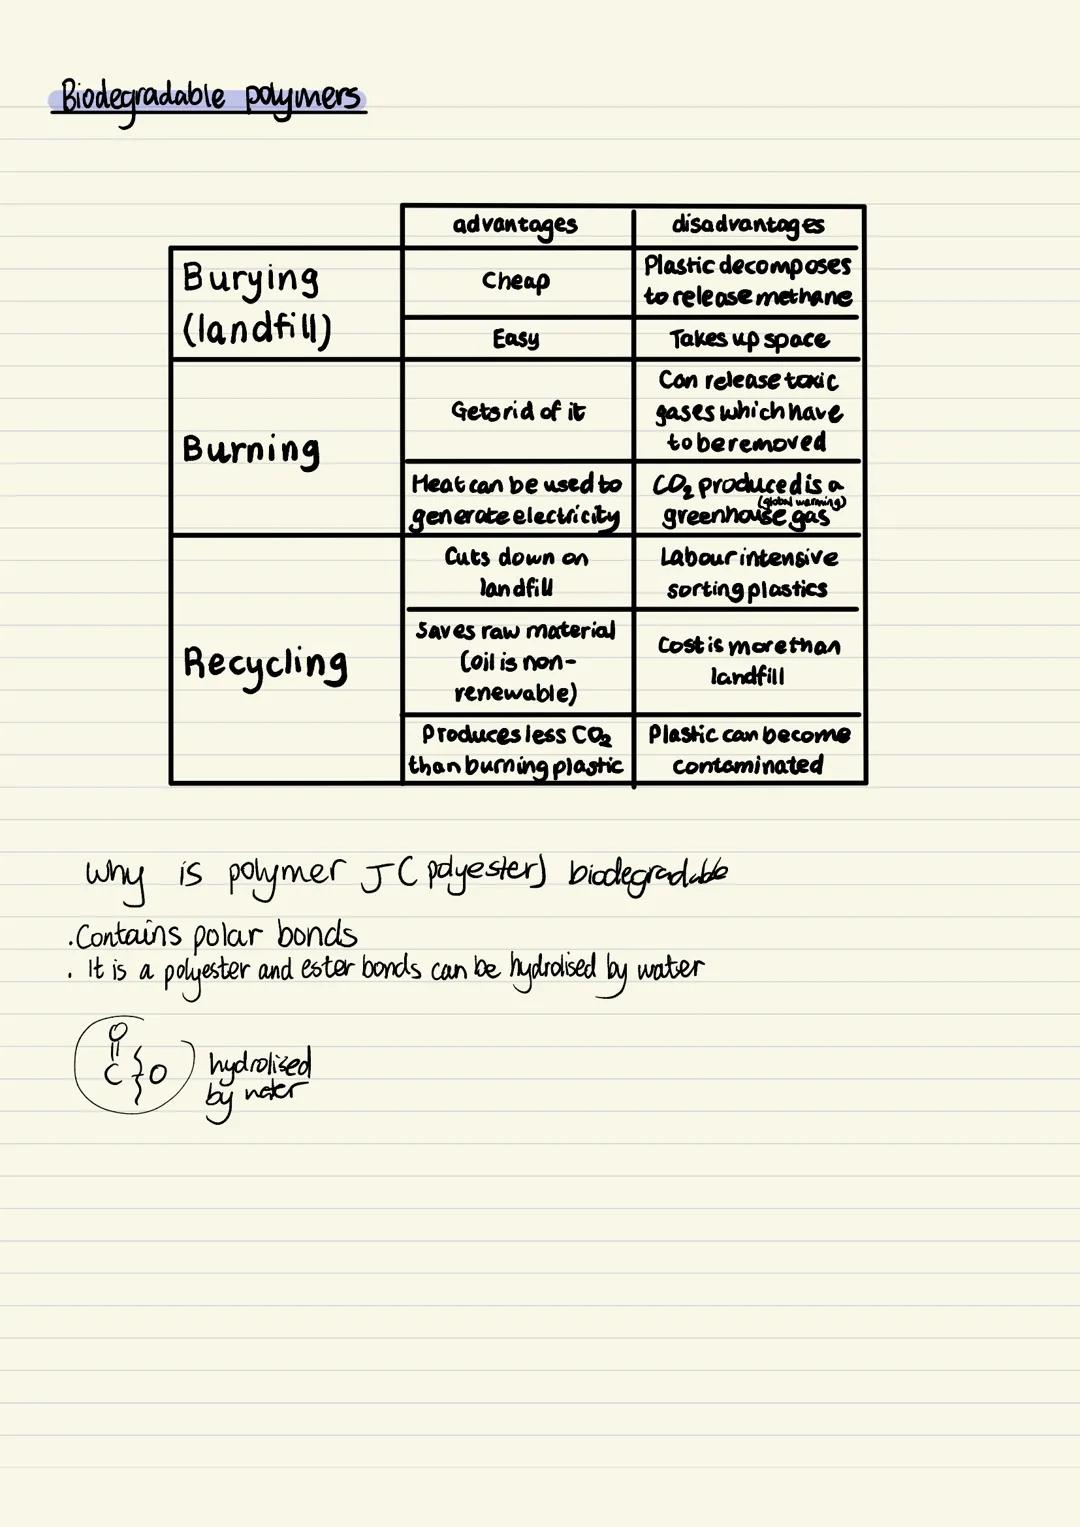 Biodegradable polymers
advantages disadvantages
Burying
(landfill)
Cheap
Plastic decomposes
to release methane
Easy
Takes up space
Burning
Gets rid of it
Can release toxic
gases which have
to be removed
Heat can be used to
generate electricity
CO₂ produced is a
(global warming)
greenhouse gas
Recycling
Cuts down on
landfill
Labour intensive
sorting plastics
Saves raw material
(oil is non-
renewable)
Cost is more than
landfill
Produces less CO₂
than burning plastic
Plastic can become
contaminated
why is polymer J (polyester) biodegradable
.Contains polar bonds
. It is a polyester and ester bonds can be hydrolised by water
O
C O
hydrolised
by water